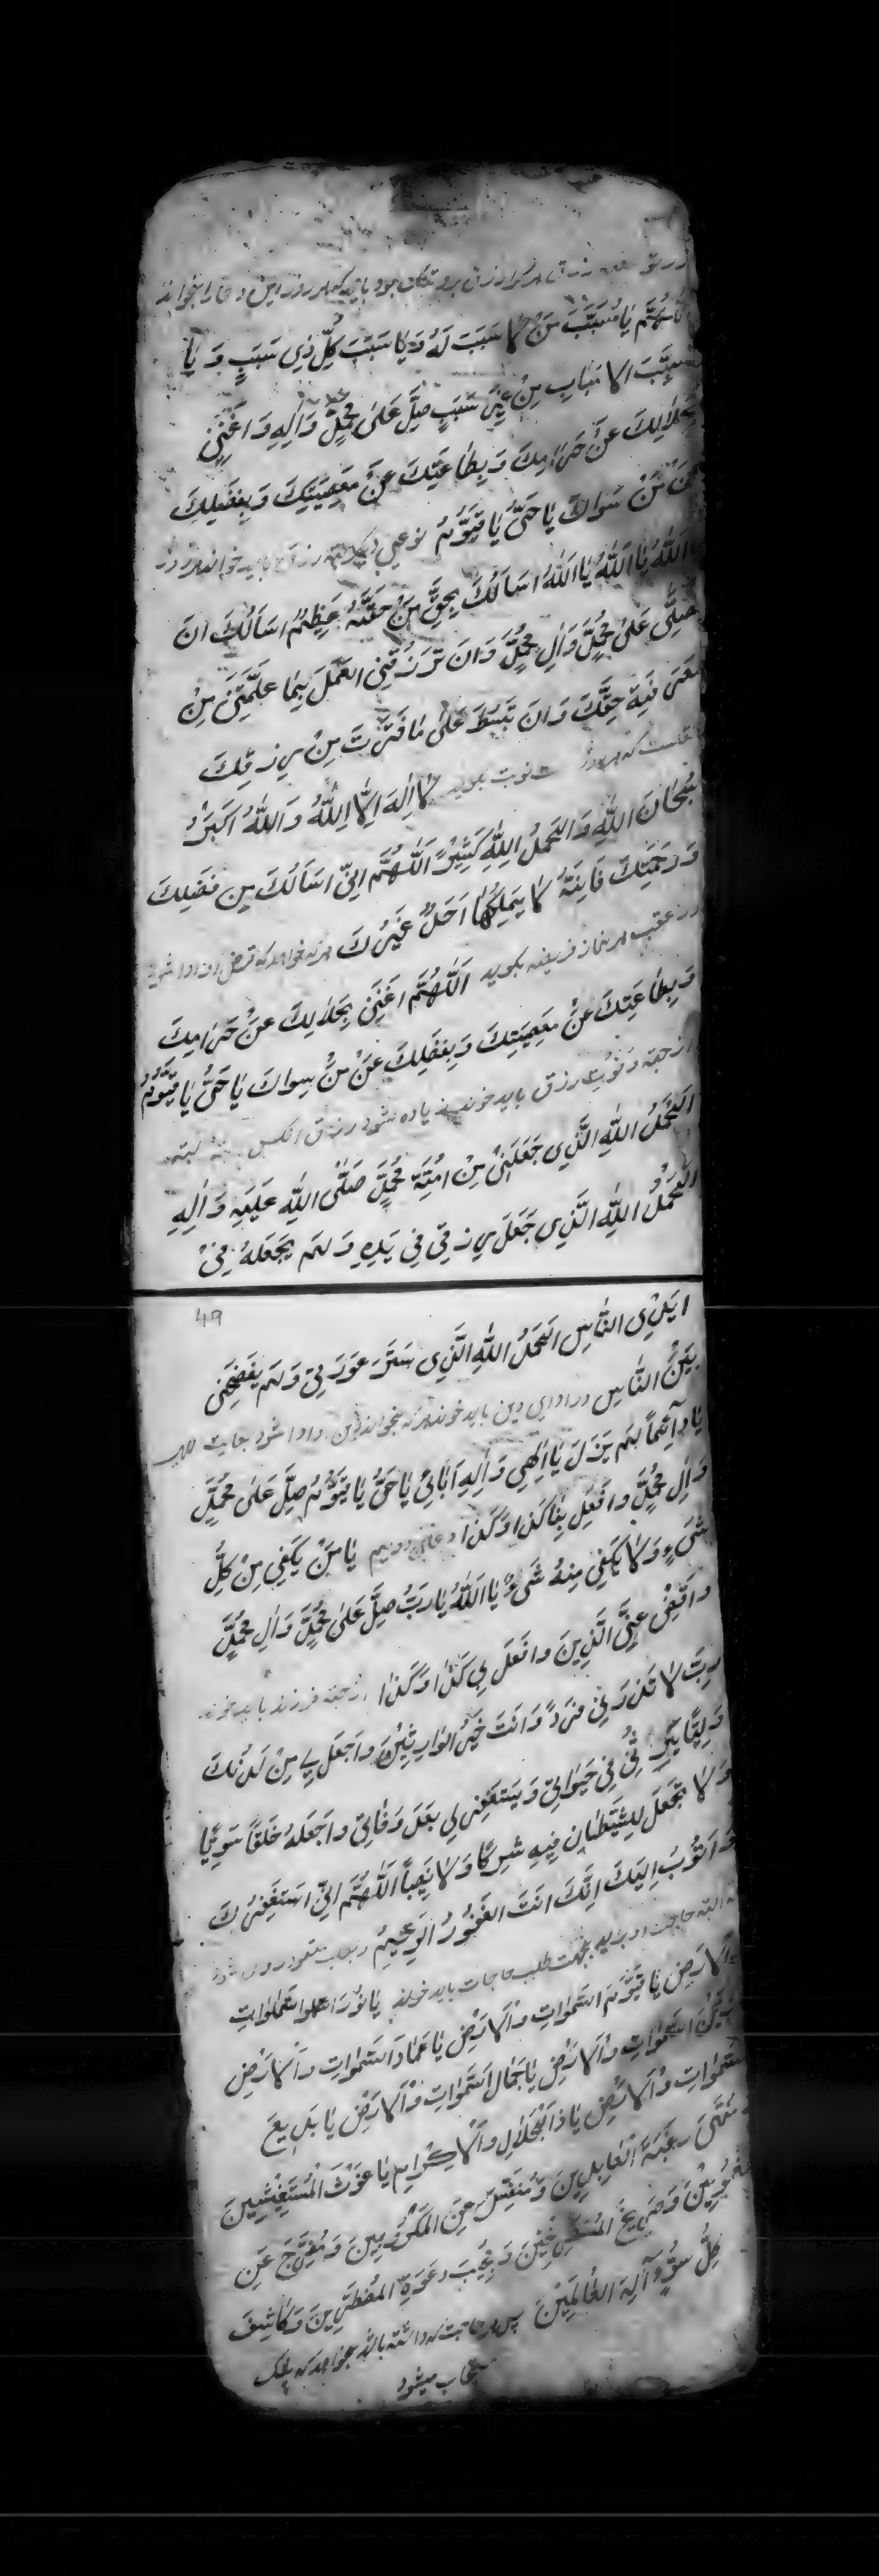 رزق هر کرا رزق برو تنگ بود باید که هر روز این دعا را بخواند
اَللّٰهُمَّ یٰا مُسَبِّبَ مَنْ لٰا سَبَبَ لَهُ وَ یٰا سَبَبَ کُلِّ ذِی سَبَبٍ وَ یٰا
مُسَبِّبَ الاَسبٰابِ مِنْ غَیْرِ سَبَبٍ صَلِّ عَلیٰ مُحَمَّدٍ وَ اٰلِهِ وَ اغْنِنِی
بِحَلٰالِکَ عَنْ حَرٰامِکَ وَ بِطٰاعَتِکَ عَنْ مَعصِیَتِکَ وَ بِفَضلِکَ
عَنْ مَنْ سَوٰاکَ یٰا حَیُّ یٰا قَیُّوْمُ نوعی دیگر جهة رزق باید خواند هر روز
یٰا اَللّٰهُ یٰا اَللّٰهُ یٰا اَللّٰهُ اسَالُکَ بِحَقِّ مَنْ حَقُّهُ عَظِیْمٌ اسَالُکَ انَ
تُصَلِّی عَلیٰ مُحَمَّدٍ وَ اٰلِ مُحَمَّدٍ وَ انَ تَرزُقَنِی العَمَلَ بِمٰا عَلَّمتَنِی مِنْ
مَعرِفَةِ حَقِّکَ وَ انَ تَبسُطَ عَلیٰ مٰا قَتَّرتَ مِنْ رِزقِکَ
که هر روز نوبت بگوید لٰا اِلٰهَ اِلَّا اللّٰهُ وَ اللّٰهُ اکبَرُ
سُبحٰانَ اللّٰهِ وَ الحَمدُ اللّٰهِ کَثِیْرً اَللّٰهُمَّ انِّی اسَالُکَ مِن فَضلِکَ
وَ رَحمَتِکَ فَاِنَّهُ لٰا یَملِکُهٰا احَدٌ غَیرُکَ هر که خواهد که قرض او ادا شود
در عقب هر نماز فریضه بگوید اَللّٰهُمَّ اغنِنِی بِحَلٰالِکَ عَنْ حَرٰامِکَ
وَ بِطٰاعَتِکَ عَنْ مَعصِیَتِکَ وَ بِفَضلِکَ عَنْ مَنْ سِوٰاکَ یٰا حَیُّ یٰا قَیُّوْمُ
از جهة رزق باید خواند زیاده شود رزق انکس البته
الحَمدُ اللّٰهِ الَّذِی جَعَلَنِی مِنْ امَّةِ مُحَمَّدٍ صَلَّی اللّٰهِ عَلَیهِ وَ اٰلِهِ
الحَمدُ اللّٰهِ الَّذِی جَعَلَ رِزقِی فِی یَدِهِ وَ لَم یَجعَلهُ فِیْ
49
ایَدِی النّٰاسِ الحَمدُ اللّٰهِ الَّذِی سَتَرَ عَورَتِی وَ لَم یَفضَحنِی
بَیْنَ النّٰاسِ در ادای دین باید خواند هر که بخواند دین او ادا شود
یٰا دٰآئِماً لَم یَزَل یٰا اِلٰهِی وَ اِلٰهِ اٰبٰائِی یٰا حَیُّ یٰا قَیُّوْمُ صَلِّ عَلیٰ مُحَمَّدٍ
وَ اٰلِ مُحَمَّدٍ وَ افعَل بِنٰا کَذا وَ کَذا دعای دویم یٰا مَنْ یَکفِی مِنْ کُلِّ
شَیءٍ وَ لٰا یَکفِی مِنهُ شَیءٌ یٰا اَللّٰهُ یٰا رَبُّ صَلِّ عَلیٰ مُحَمَّدٍ وَ اٰلِ مُحَمَّدٍ
وَ اقضِ عَنِّی الَّدِینَ وَ افعَل بِی کَذٰا وَ کَذٰا از جهة فرزند باید خواند
رَبِّ لٰا تَذَرنِی فَردً وَ انَتَ خَیرُ الوٰارِثِیْنَ وَ اجعَل لِی مِنْ لَدُنکَ
وَلِیًّا یَرِثُنِی فِی حَیٰوتِی وَ یَستَغفِر لِی بَعدَ وَفٰاتِی وَ اجعَلهُ خَلَقاً سَوِیًّا
وَ لٰا تَجعَل لِلشَّیطٰانِ فِیهِ شِرکًا وَ لٰا نَصِیباً اَللّٰهُمَّ انِّی استَغفِرُکَ
وَ اَتُوبُ اِلَیکَ اِنَّکَ انَتَ الغَفُوْرُ الرَحِیْمُ
البته حاجت او برآید بجهت طلب حاجات باید خواند یٰا نُوْرَ السَّمٰوٰاتِ
وَ الاَرَضِ یٰا قَیُّوْمَ السَّمٰوٰاتِ وَ الاَرَضِ یٰا عِمٰادَ السَّمٰوٰاتِ وَ الاَرضِ
یٰا زَیْنَ السَّمٰوٰاتِ وَ الاَرضِ یٰا جَمٰالَ السَّمٰوٰاتِ وَ الاَرَضِ یٰا بَدِیعَ
السَّمٰوٰاتِ وَ الاَرضِ یٰا ذَا الْجَلاٰلِ وَ الاِکرٰامِ یٰا غَوْثَ الْمُسْتَغِیْثِینَ
وَ مُنتَهیٰ رَغبَةِ العٰابِدِینَ وَ مُنَفِّسَ عَنِ المَکرُوبِینَ وَ مُفَرِّجَ عَنِ
المَغمُومِیْنَ وَ صَرِیخَ المُستَصرِخِیْنَ وَ مُجِیْبَ دَعوَةِ المُضطَرِّینَ وَ کٰاشِفَ
کُلِّ سُوْءٍ اٰلِهَ العٰالَمِیْنَ پس هر حاجت که داشته باشد بخواهد که بیشک
مستجاب میشود